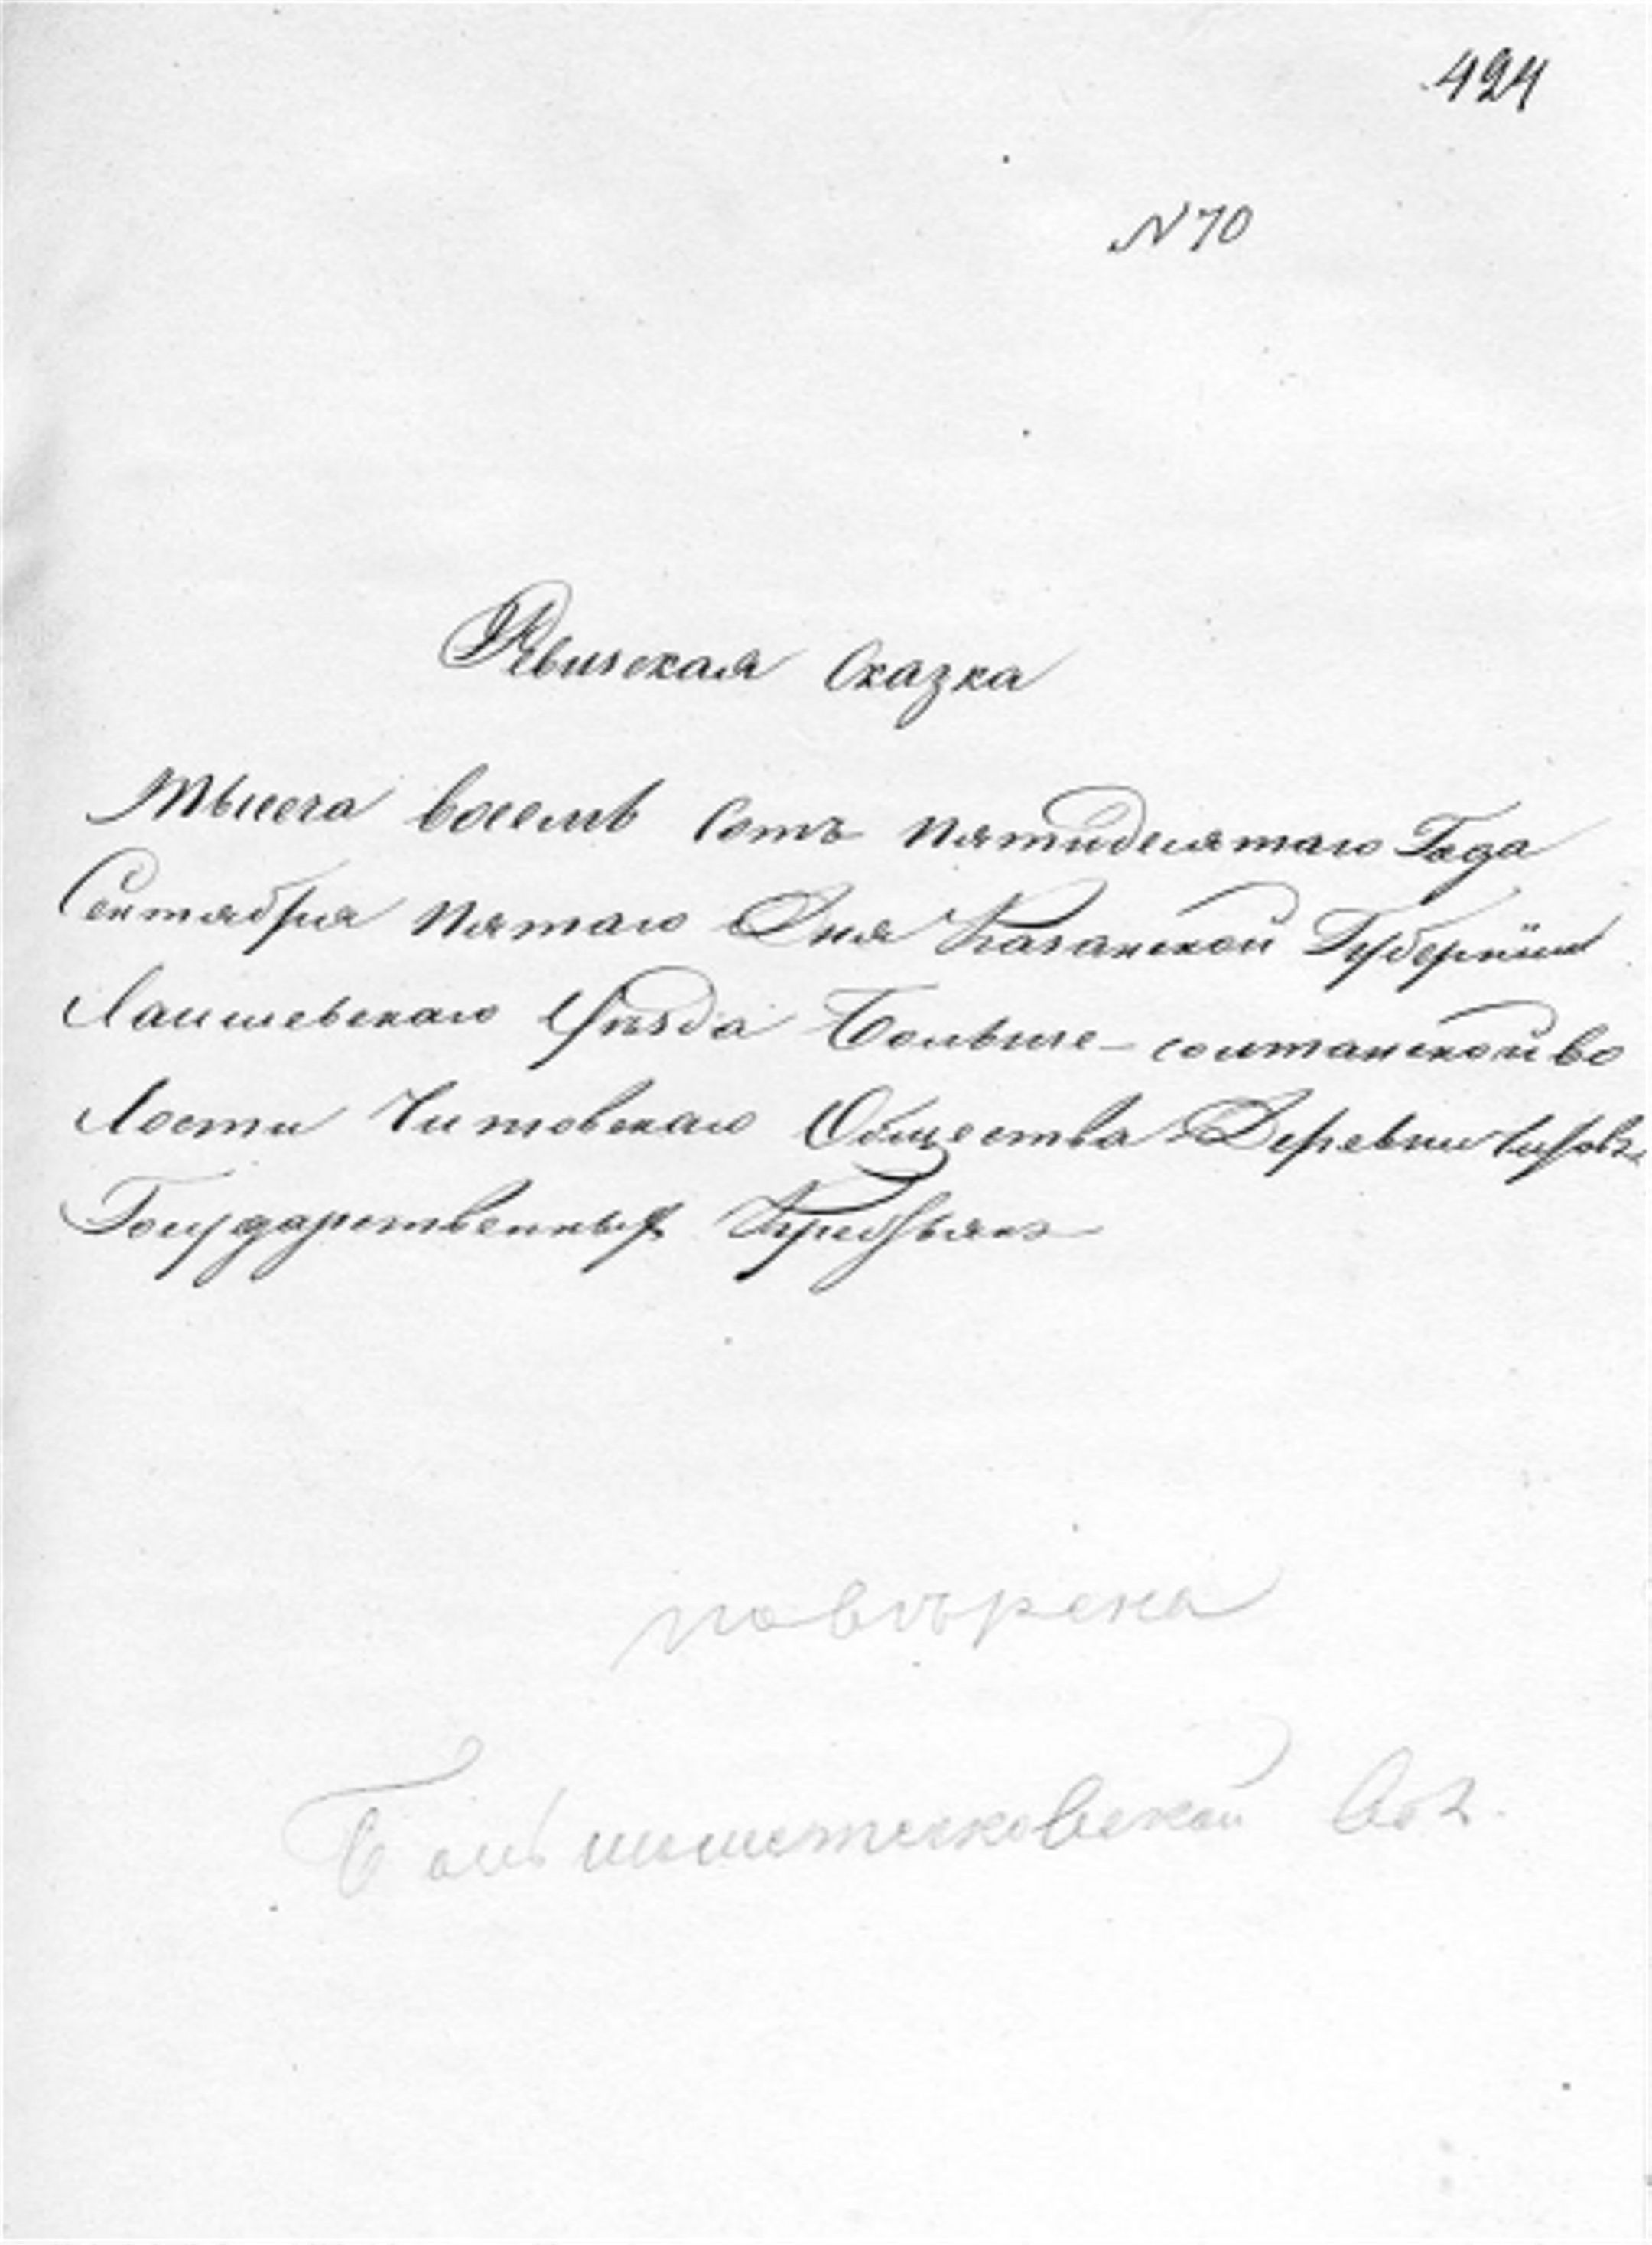 424
N 70
Ревизская Сказка
Тысеча восемь сотъ пятидесятаго Года
Сентября пятаго Дня Казанской Губернiи
Лаишевскаго Уѣзда Больше-солтанской во
лости Читовскаго Общества Деревни
Государственныхъ Крестьянъ
повѣрена
Вол.